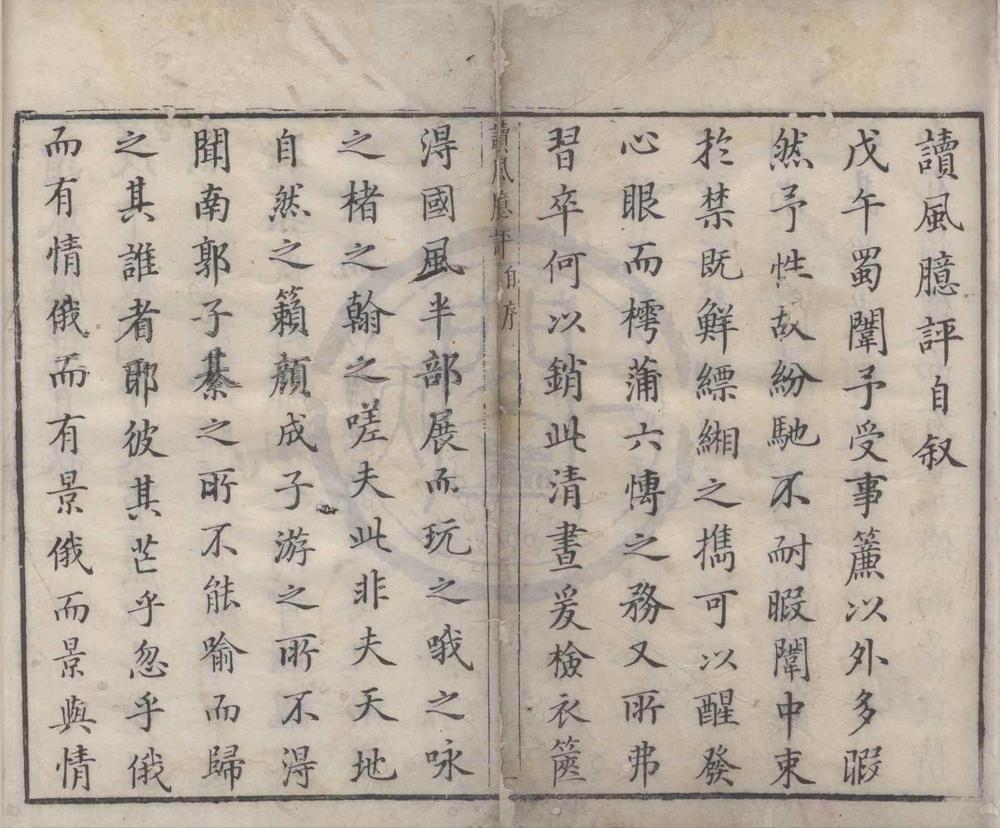 讀風臆評自叙
戊午蜀闈予受事簾以外多暇
然予性故紛馳不耐暇闈中束
於禁既鮮縹緗之擕可以醒發
心眼而樗蒲六慱之務又所弗
習卒何以銷此清晝爰檢衣篋
讀風臆評 自序
得國風半部展而玩之哦之咏
之楮之翰之嗟夫此非夫天地
自然之籟顏成子游之所不得
聞南郭子綦之所不能喻而歸
之其誰者耶彼其芒乎忽乎俄
而有情俄而有景俄而景與情